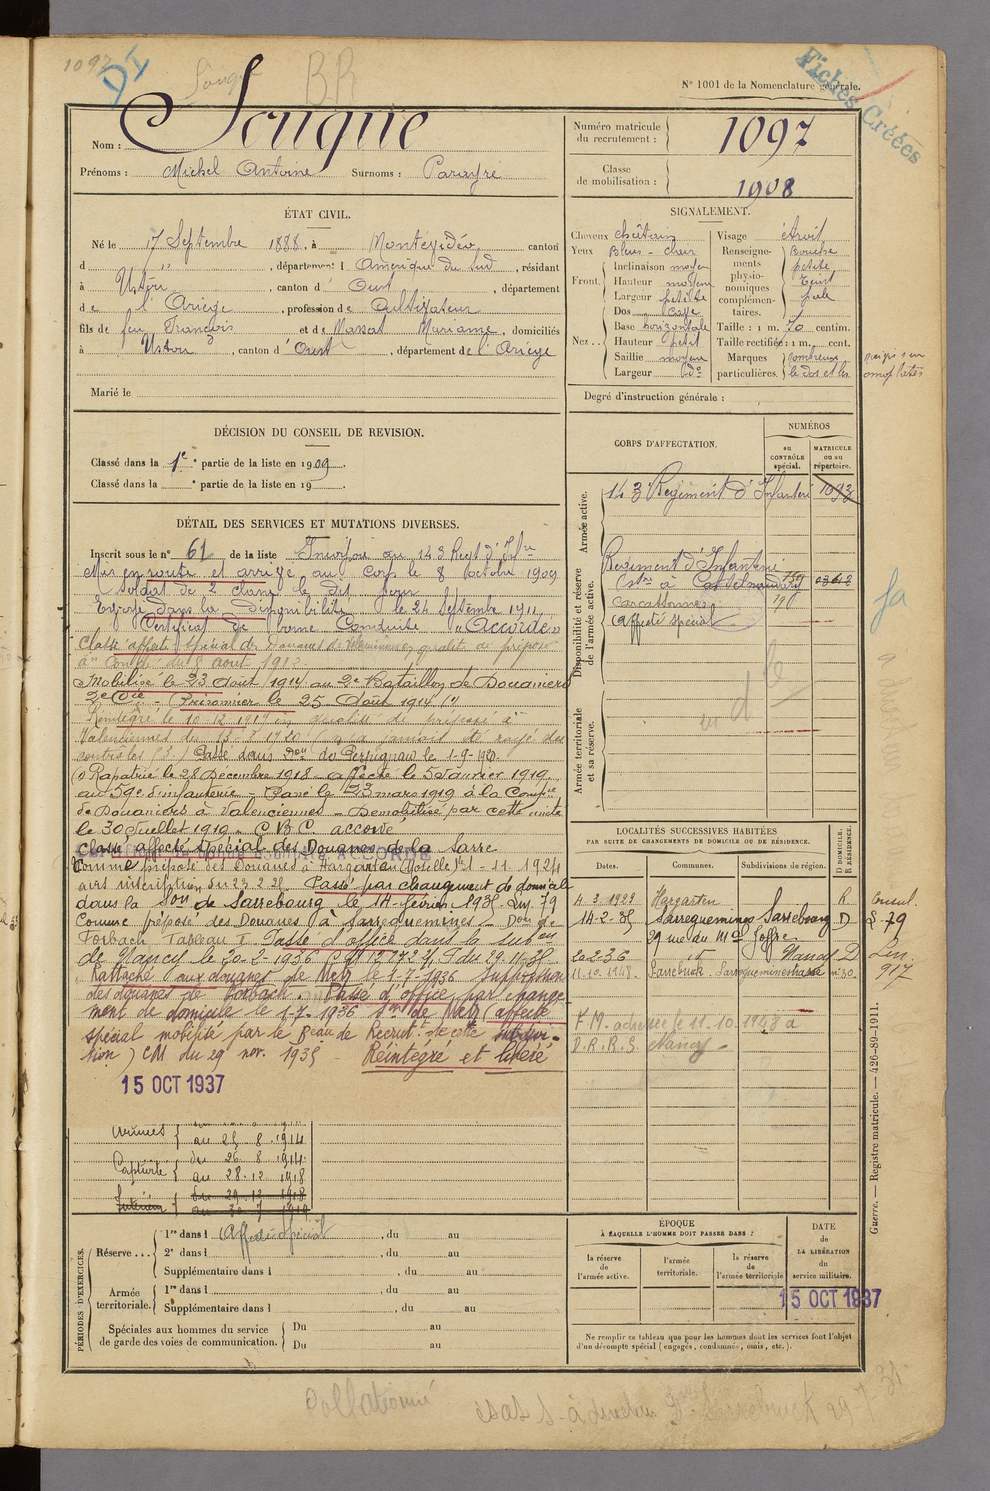 1097
D1
Souque
BR
Fiches Créées
N° 1001 de la Nomenclature générale.
Nom : Souque
Prénoms : Michel Antoine Surnoms : Parayré
Numéro matricule du recrutement : 1097
Classe de mobilisation : 1908
ÉTAT CIVIL.
Né le 17 Septembre 1888, à Montévidéo, canton
d " , département d Amérique du Sud, résidant
à Ustou, canton d'Oust, département
de l'Ariège, profession de Cultivateur
fils de feu François et de Massat Marianne, domiciliés
à Ustou, canton d'Oust, département de l'Ariège
Marié le
SIGNALEMENT.
Cheveux châtains
Yeux Bleus - clair
Front. Inclinaison moyen
Hauteur moyenne
Largeur petite
Nez. Dos cave
Base horizontale
Hauteur petit
Saillie moyenne
Largeur do
Visage étroit
Renseignements physionomiques complémentaires. Bouche petite Teint pale
Taille : 1 m. 70 centim.
Taille rectifiée : 1 m. cent.
Marques particulières. nombreux naigs sur le dos et les omoplates
Degré d'instruction générale :
DÉCISION DU CONSEIL DE REVISION.
Classé dans la 1e partie de la liste en 1909.
Classé dans la ° partie de la liste en 19 .
CORPS D'AFFECTATION.
NUMÉROS
au CONTRÔLE spécial.
MATRICULE ou au répertoire.
Armée active.
143 Régiment d'Infanterie 1093
Disponibilité et réserve de l'armée active.
Régiment d'Infanterie
à Castelnaudary
Carcassonne
Affecté spécial
Armée territoriale et sa réserve.
DÉTAIL DES SERVICES ET MUTATIONS DIVERSES.
Inscrit sous le n° 61 de la liste
au 143 Regt d'Infie
Mis en route et arrivé au Corps le 8 octobre 1909
Soldat de 2e classe le dit jour
dans la Disponibilité le 24 Septembre 1911.
Certificat de bonne Conduite "Accordé"
Classé affecté spécial des Douanes de Valenciennes, qualité de préposé
à " du 8 août 1912
Mobilisé le 23 Août 1914 au 2e Bataillon de Douaniers
2e Cie - Prisonnier le 25 Août 1914 (1)
Réintégré le 10.12.1919 en qualité de préposé à
Valenciennes du 13.3.1920 (n'a jamais été rayé des
contrôles) Passé dans Don de Perpignan le 1-9-1920.
(1) Rapatrié le 28 Décembre 1918 - affecté le 5 Janvier 1919
au 59e d'infanterie - Passé le 23 mars 1919 à la Compie
de Douaniers à Valenciennes - Démobilisé par cette unité
le 30 Juillet 1919 - C.B.C. accordé
Classé affecté spécial des Douanes de la Sarre
Comme préposé des Douanes à Hargarten (Moselle) le 1-11-1924
avis du 23.2.25. Passé par changement de domicile
dans la Son de Sarrebourg le 14 février 1935. Lm. 79
Comme préposé des Douanes à Sarreguemines - Don de
Forbach. Tableau I. Passé d'office dans la subon
de Nancy le 20-2-1936 du 29.11.35.
Rattaché aux douanes de Metz le 1-7-1936 suppression
des douanes de Forbach. Passé d'office par change-
ment de domicile le 1-7-1936 Son de Metz (affecté
spécial mobilisé par le Beau de Recrut. de cette subdivi-
sion) CM du 29 nov. 1935 - Réintégré et libéré
15 OCT 1937
au 25 8 1914
Captivité { du 26 8 1914
au 28.12 1918
Intérieur { du 29 12 1918
au 30 7 1919
LOCALITÉS SUCCESSIVES HABITÉES
PAR SUITE DE CHANGEMENTS DE DOMICILE OU DE RÉSIDENCE.
Dates.
Communes.
Subdivisions de région.
D DOMICILE. R RÉSIDENCE.
4 3 1929 Hargarten R
14-2-35 Sarreguemines Sarrebourg D L-79
29 rue du Mal Joffre
20.2.36 id Nancy D
917
11.10.1948. Sarrebruck - Sarregueminerstrasse n° 30
F.M. adressée le 11-10-1948 à
D.R.R.S. Nancy -
PÉRIODES D'EXERCICES.
Réserve ... 1re dans l Affecté spécial, du au
2e dans l , du au
Supplémentaire dans l , du au
Armée territoriale. 1re dans l , du au
Supplémentaire dans l , du au
Spéciales aux hommes du service de garde des voies de communication. Du au
Du au
ÉPOQUE
À LAQUELLE L'HOMME DOIT PASSER DANS :
la réserve de l'armée active.
l'armée territoriale.
la réserve de l'armée territoriale
DATE DE LA LIBÉRATION du service militaire.
15 OCT 1937
Ne remplir ce tableau que pour les hommes dont les services font l'objet
d'un décompte spécial (engagés, condamnés, omis, etc.).
Guerre. — Registre matricule. — 426-89-1911.
Collationné